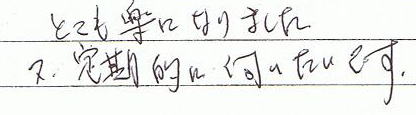 とても楽になりました
又、定期的に伺いたいです。